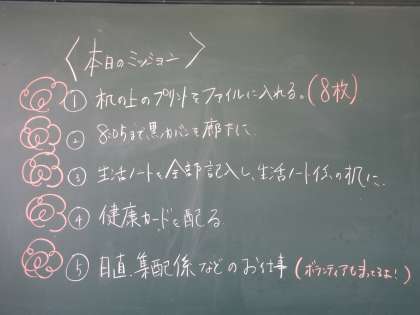 〈本日のミッション〉
① 机の上のプリントをファイルに入れる。(8枚)
② 8:05まで黒カバンを廊下に
③ 生活ノートを全部記入し、生活ノート係の机に
④ 健康カードを配る
⑤ 日直、集配係などのお仕事(ボランティアもまってるよ!)